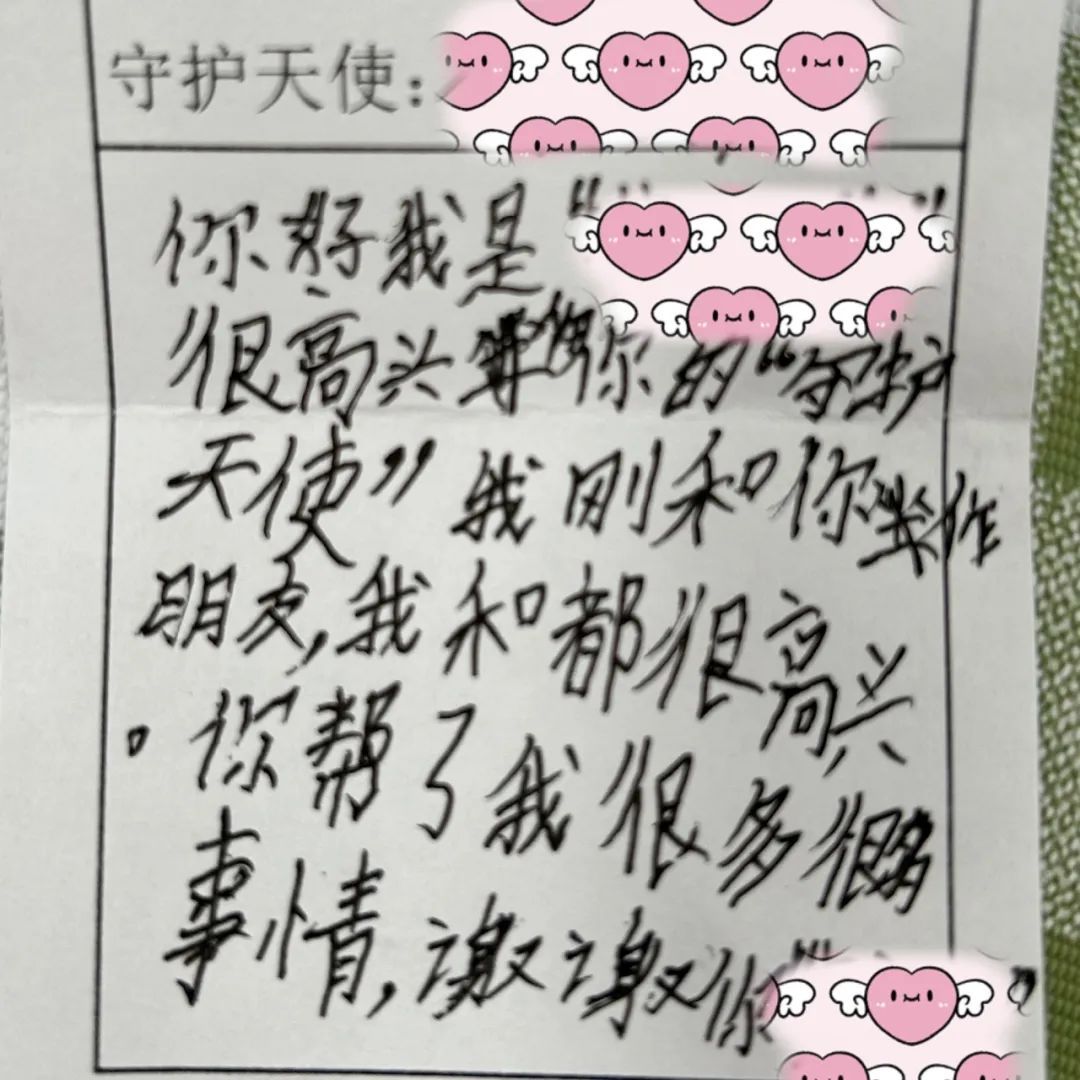 守护天使:
你好我是“ ”
很高兴 你的“守护
天使”我刚和你 作
朋友,我和都很高兴
。你帮了我很多很多
事情,谢谢你“ ”